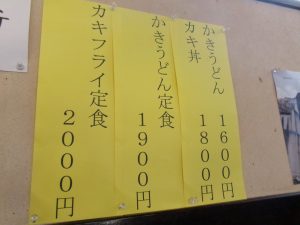 かきうどん 1600円
カキ丼 1800円
かきうどん定食 1900円
カキフライ定食 2000円